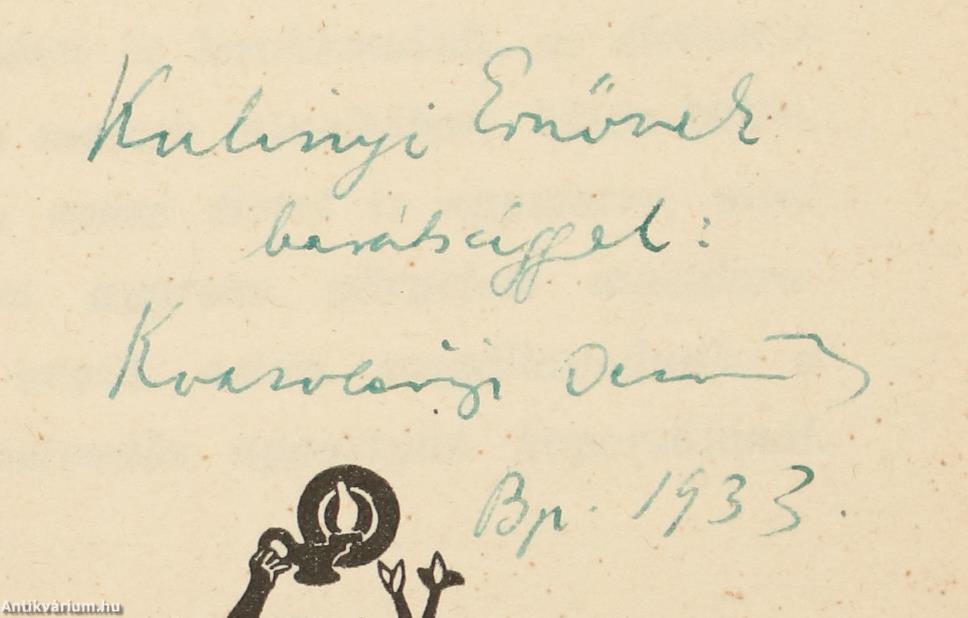 Kulinyi Ernőnek
barátsággal:
Kosztolányi Dezső
Bp. 1933.
Antikvárium.hu